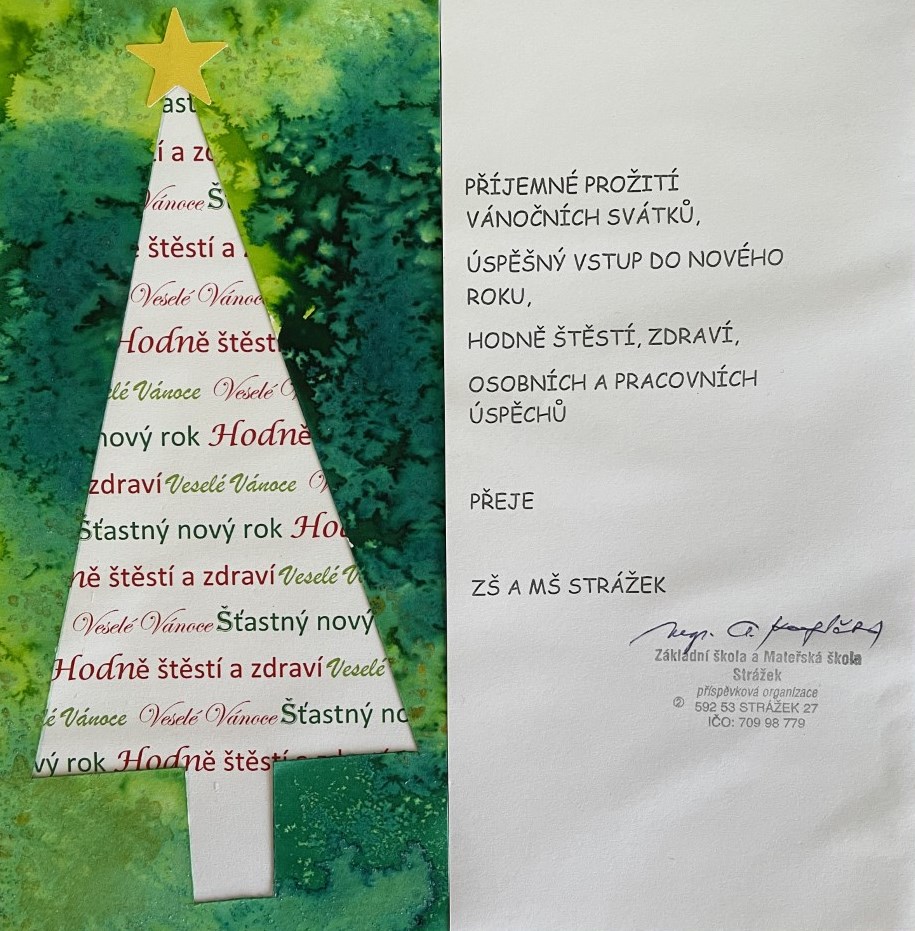 ast
í a z
Vánoce Š
štěstí a
Veselé Vánoc
Hodně štěst
lé Vánoce Veselé V
nový rok Hodně
zdraví Veselé Vánoce V
Šťastný nový rok Ho
ně štěstí a zdraví Veselé V
Veselé Vánoce Šťastný nový
Hodně štěstí a zdraví Veselé
é Vánoce Veselé Vánoce Šťastný no
vý rok Hodně štěstí a zdraví
PŘÍJEMNÉ PROŽITÍ
VÁNOČNÍCH SVÁTKŮ,
ÚSPĚŠNÝ VSTUP DO NOVÉHO
ROKU,
HODNĚ ŠTĚSTÍ, ZDRAVÍ,
OSOBNÍCH A PRACOVNÍCH
ÚSPĚCHŮ
PŘEJE
ZŠ A MŠ STRÁŽEK
Mgr. A.
Základní škola a Mateřská škola
Strážek
příspěvková organizace
② 592 53 STRÁŽEK 27
IČO: 709 98 779